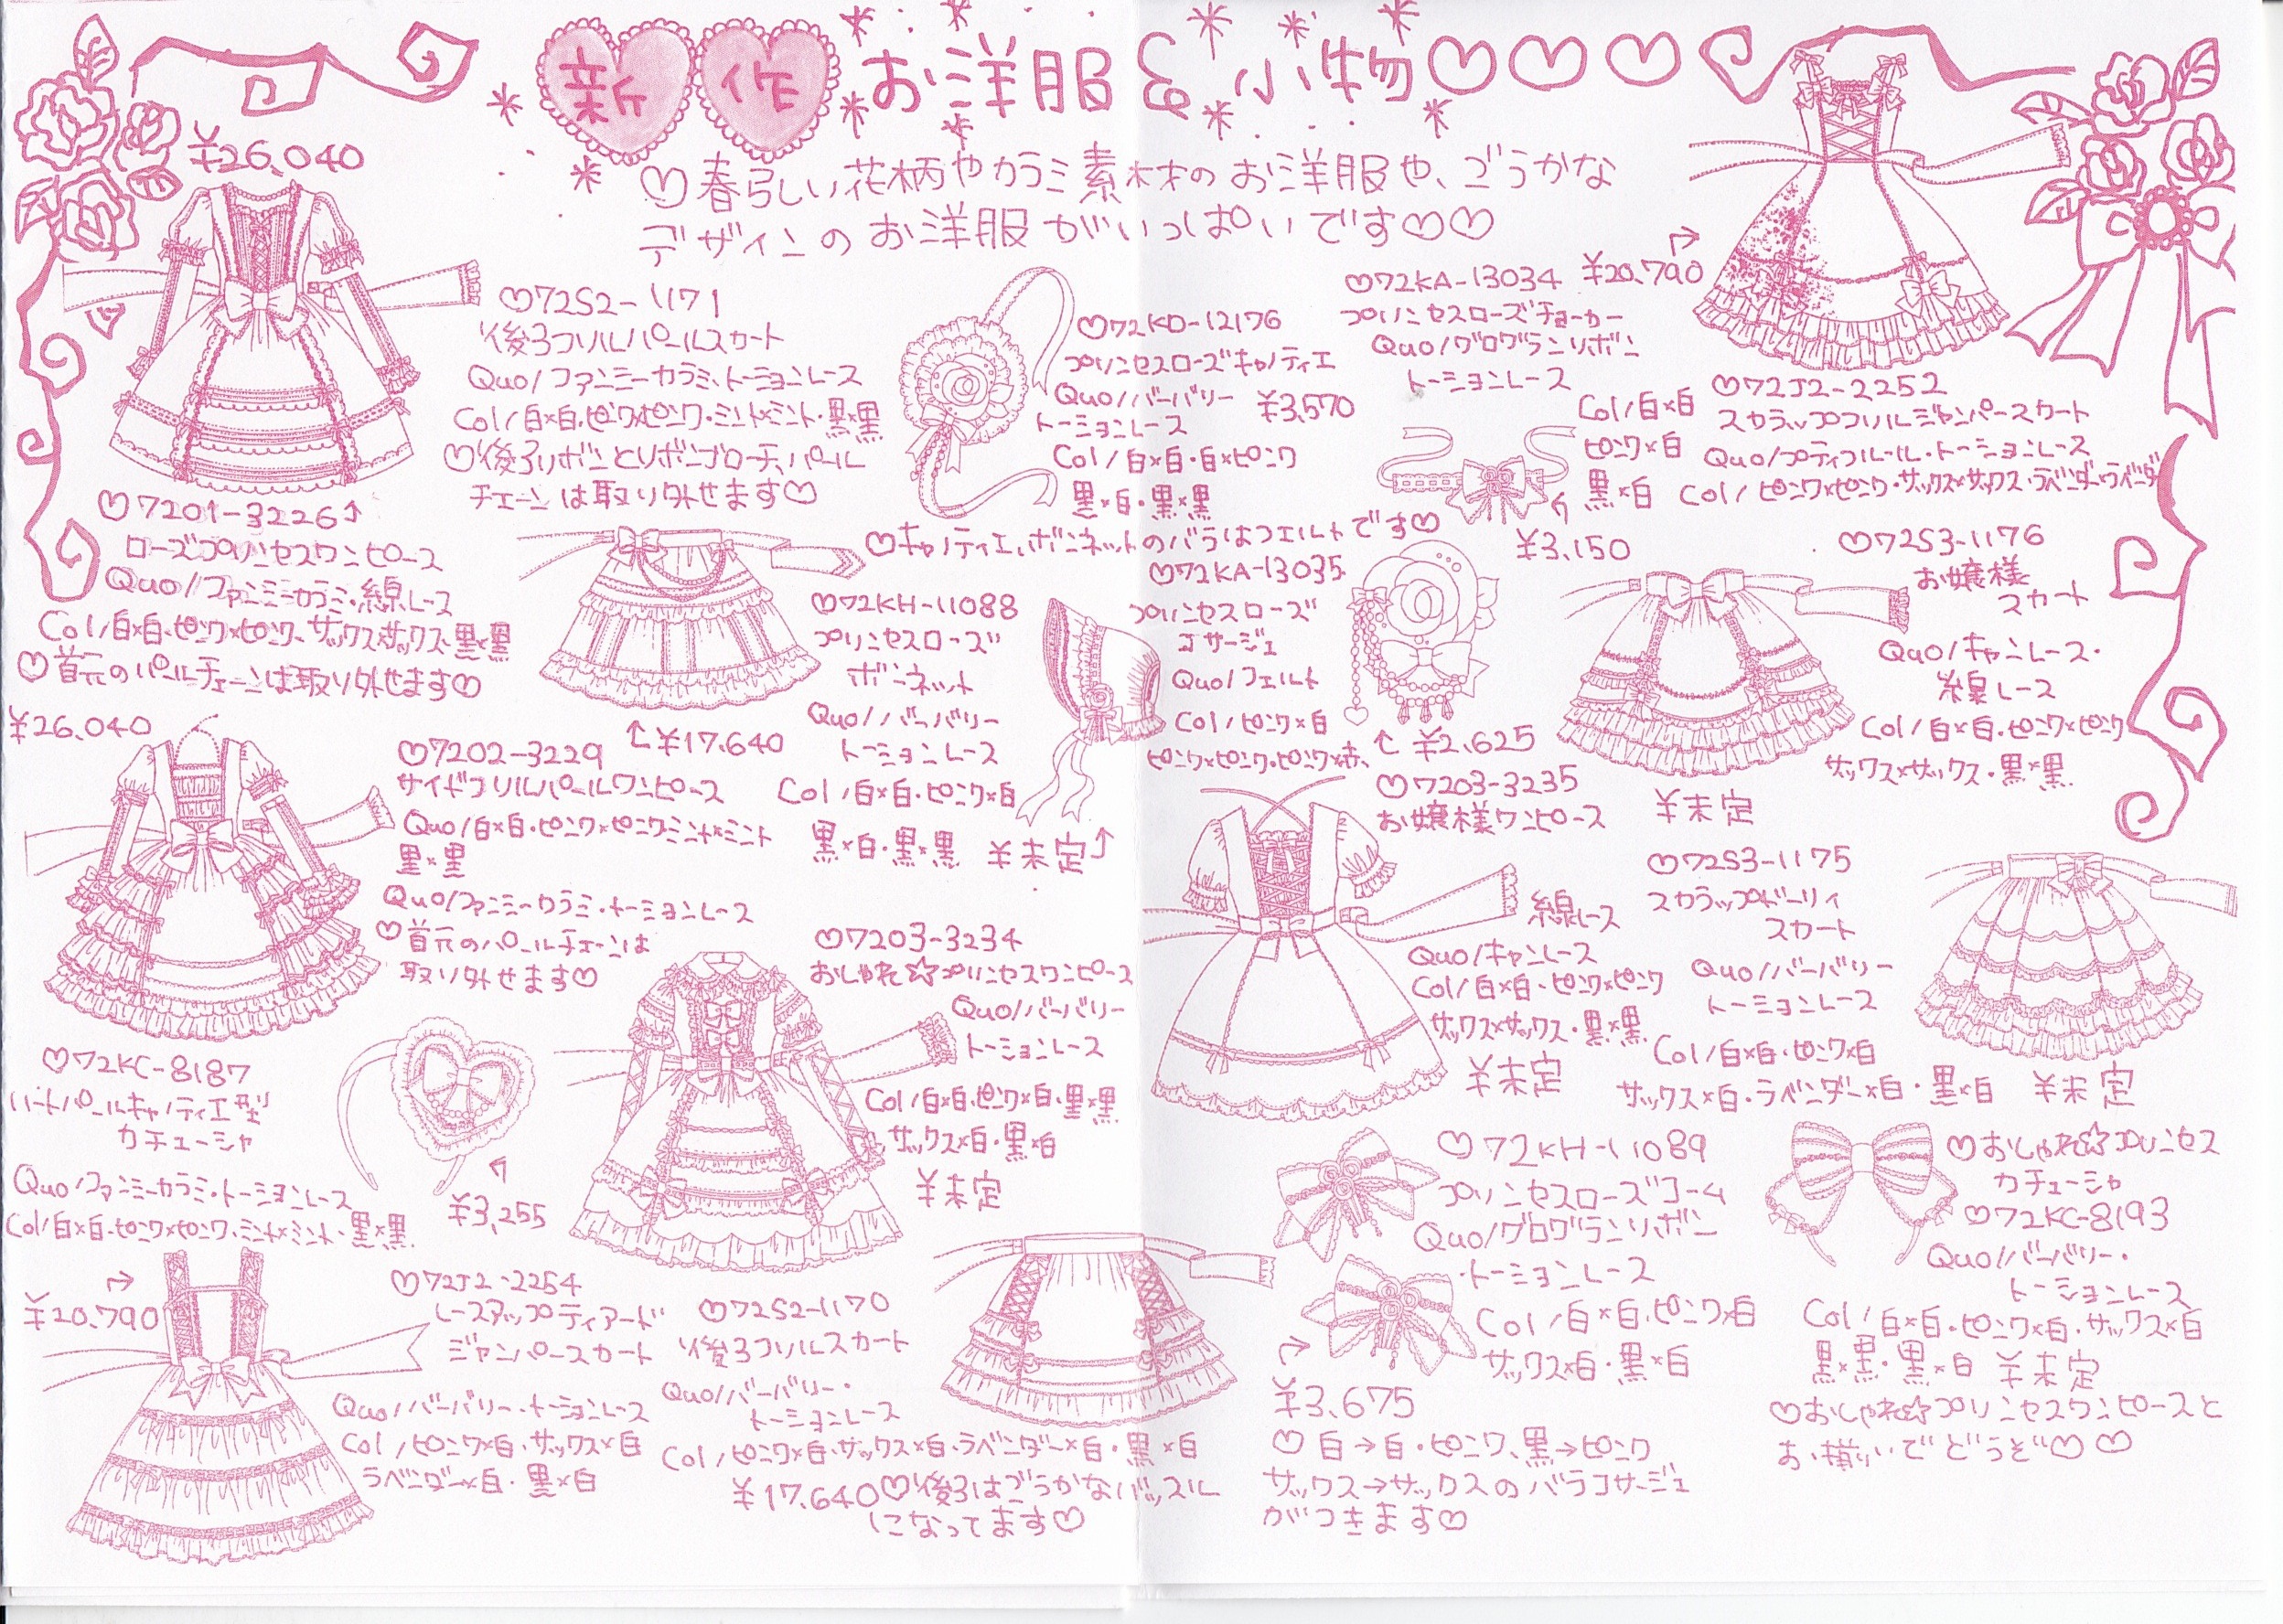 新作お洋服&小物♡♡♡
♡春らしい花柄やカラミ素材のお洋服や、ごうかな
デザインのお洋服がいっぱいです♡♡
¥26,040
♡7201-3226↑
ローズプリンセスワンピース
Quo/ファンミーカラミ・綿レース
Col/白×白・ピンク×ピンク、サックス×サックス・黒×黒
♡首元のパールチェーンは取り外せます♡
♡72S2-1171
後ろフリルパールスカート
Quo/ファンミーカラミ、トーションレース
Col/白×白・ピンク×ピンク・ミント×ミント・黒×黒
♡後ろリボンとリボンブローチ、パール
チェーンは取り外せます♡
↑¥17,640
♡72KD-12176
プリンセスローズキャノティエ
Quo/バーバリー
トーションレース
¥3,570
Col/白×白・白×ピンク
黒×白・黒×黒
♡キャノティエ、ボンネットのバラはフェルトです♡
♡72KA-13034
プリンセスローズチョーカー
Quo/グログランリボン
トーションレース
Col/白×白
ピンク×白
黒×白
¥3,150
¥20,790
♡72J2-2252
スカラップフリルジャンパースカート
Quo/プティフルール・トーションレース
Col/ピンク×ピンク・サックス×サックス・ラベンダー×ラベンダー
♡72KH-11088
プリンセスローズ
ボンネット
Quo/バーバリー
トーションレース
Col/白×白・ピンク×白
黒×白・黒×黒 ¥未定
♡72KA-13035
プリンセスローズ
コサージュ
Quo/フェルト
Col/ピンク×白
ピンク×ピンク・ピンク×赤、
↑¥2,625
♡72S3-1176
お嬢様
スカート
Quo/キャンレース・
綿レース
Col/白×白・ピンク×ピンク
サックス×サックス・黒×黒
¥未定
¥26,040
♡7202-3229
サイドフリルパールワンピース
Quo/白×白・ピンク×ピンク・ミント×ミント
黒×黒
Quo/ファンミーカラミ・トーションレース
♡首元のパールチェーンは
取り外せます♡
♡7203-3234
おしゃれ☆プリンセスワンピース
Quo/バーバリー
トーションレース
Col/白×白、ピンク×白、黒×黒
サックス×白・黒×白
¥未定
♡7203-3235
お嬢様ワンピース
綿レース
Quo/キャンレース
Col/白×白、ピンク×ピンク
サックス×サックス・黒×黒
¥未定
♡72S3-1175
スカラップドーリィ
スカート
Quo/バーバリー
トーションレース
Col/白×白・ピンク×白
サックス×白・ラベンダー×白・黒×白 ¥未定
♡72KC-8187
ハートパールキャノティエ型
カチューシャ
Quo/ファンミーカラミ・トーションレース
Col/白×白・ピンク×ピンク、ミント×ミント・黒×黒
¥3,255
¥20,790
♡72J2-2254
レースアップティアード
ジャンパースカート
Quo/バーバリー・トーションレース
Col/ピンク×白・サックス×白
ラベンダー×白・黒×白
♡72S2-1170
後ろフリルスカート
Quo/バーバリー・
トーションレース
Col/ピンク×白・サックス×白・ラベンダー×白・黒×白
¥17,640♡後ろはごうかなバッスル
になってます♡
♡72KH-11089
プリンセスローズコーム
Quo/グログランリボン
・トーションレース
Col/白×白、ピンク×白
サックス×白・黒×白
¥3,675
♡白→白・ピンク、黒→ピンク
サックス→サックスのバラコサージュ
がつきます♡
♡おしゃれ☆プリンセス
カチューシャ
♡72KC-8193
Quo/バーバリー・
トーションレース
Col/白×白・ピンク×白・サックス×白
黒×黒・黒×白 ¥未定
♡おしゃれ☆プリンセスワンピースと
お揃いでどうぞ♡♡